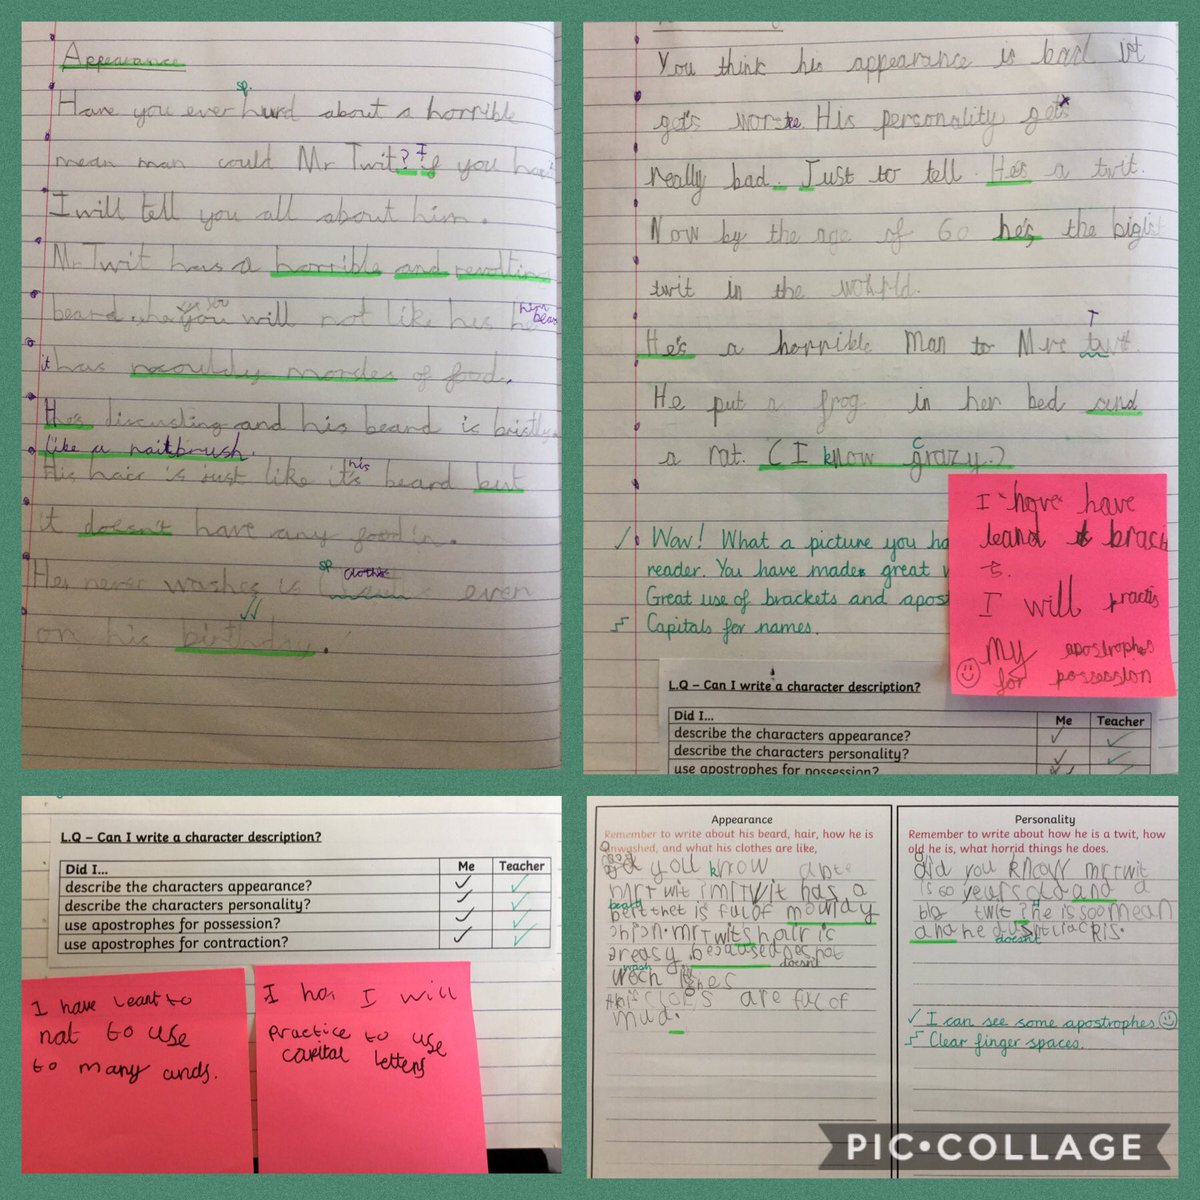 Appearance
sp.
Have you ever hurd about a horrible
mean man could Mr Twit? If you
I will tell you all about him.
Mr Twit has a horrible and revolting
beard you will not like his
it has mouldy of food.
He's discusting and his beard is bristly
like a nailbrush.
His hair is just like it's his beard but
it doesn't have any food in.
He never washes is sp clothes even
on his birthday.
You think his appearance is bad it
gets His personality gets
really bad. Just to tell He's a twit.
Now by the age of 60 he's the bigist
twit in the world.
He's a horrible man to Mrs T twit.
He put a frog in her bed and
a rat. (I know c grazy.)
Wow! What a picture you ha
reader. You have made great
Great use of brackets and apost
Capitals for names.
I have
leand brack
ts.
I will practis
My apostrophes
for possession
L.Q – Can I write a character description?
Did I... Me Teacher
describe the characters appearance?
describe the characters personality?
use apostrophes for possession?
L.Q – Can I write a character description?
Did I... Me Teacher
describe the characters appearance?
describe the characters personality?
use apostrophes for possession?
use apostrophes for contraction?
I have leant to
not to use
to many ands.
I I will
practice to use
capital letters
Appearance
Remember to write about his beard, hair, how he is
unwashed, and what his clothes are like,
you know
mr twit has a
beard
is ful of mouldy
mr twit's hair is
greasy because does not
wash doesn't
are ful of
mud.
Personality
Remember to write about how he is a twit, how
old he is, what horrid things he does.
did you know mr twit
is 60 years old and a
big twit? he is soo mean
and he
doesn't
I can see some apostrophes
Clear finger spaces.
PIC•COLLAGE